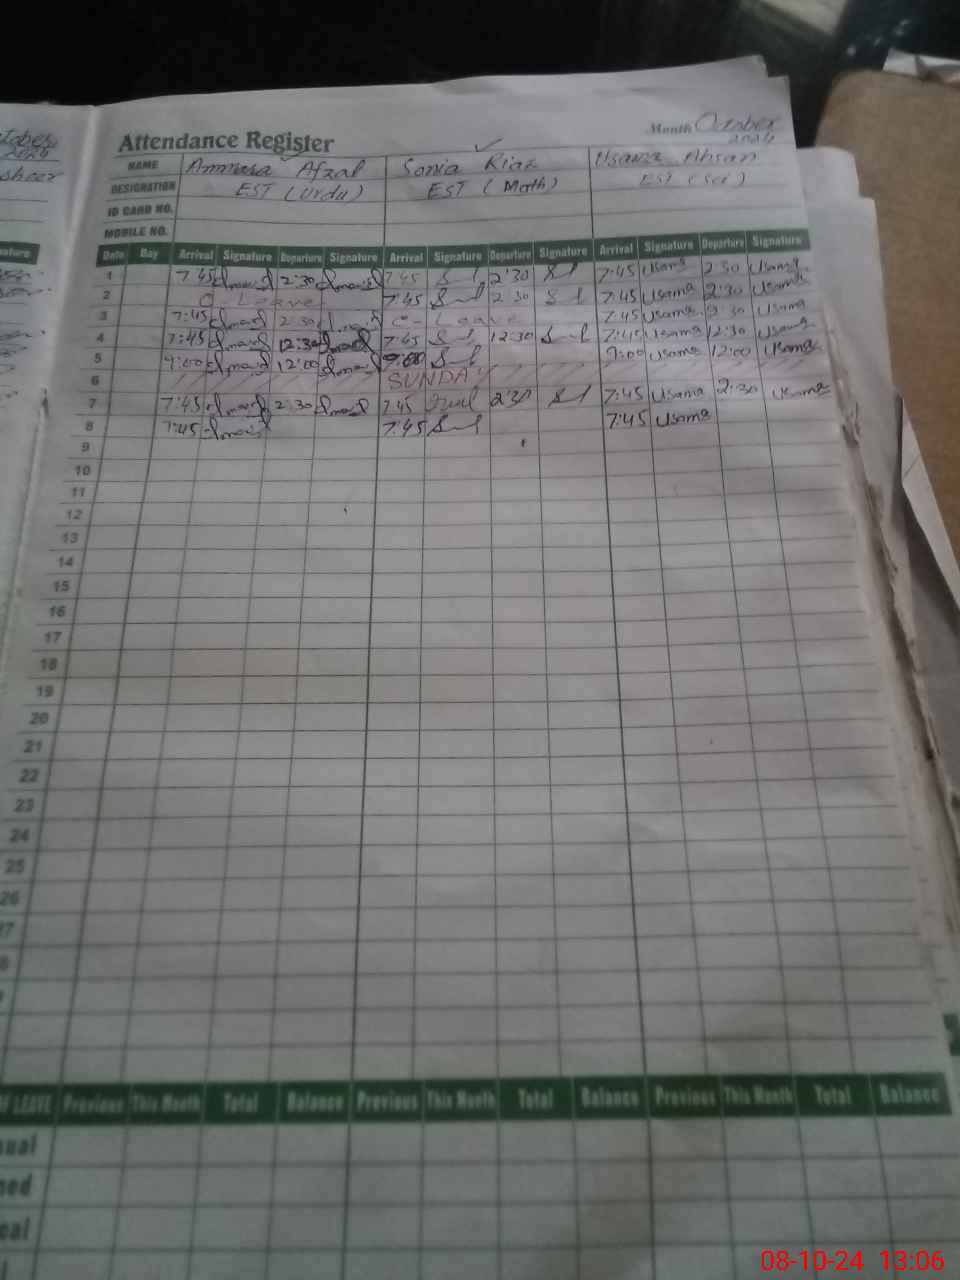 tober
2024
sheer
Attendance Register
Month October
2024
NAME Ammara Afzal Sonia Riaz Usama Ahsan
DESIGNATION EST (Urdu) EST (Math) EST (Sci)
ID CARD NO.
MOBILE NO.
ature
Date Day Arrival Signature Departure Signature Arrival Signature Departure Signature Arrival Signature Departure Signature
1 7:45 2:30 7:45 2:30 7:45 Usama 2:30 Usama
2 C-Leave 7:45 2:30 7:45 Usama 2:30 Usama
3 7:45 2:30 C-Leave 7:45 Usama 2:30 Usama
4 7:45 12:30 7:45 12:30 7:45 Usama 12:30 Usama
5 9:00 12:00 9:00 9:00 Usama 12:00 Usama
6 SUNDAY
7 7:45 2:30 7:45 2:30 7:45 Usama 2:30 Usama
8 7:45 7:45 7:45 Usama
9
10
11
12
13
14
15
16
17
18
19
20
21
22
23
24
25
26
7
8
OF LEAVE Previous This Month Total Balance Previous This Month Total Balance Previous This Month Total Balance
sual
ned
cal
08-10-24 13:06